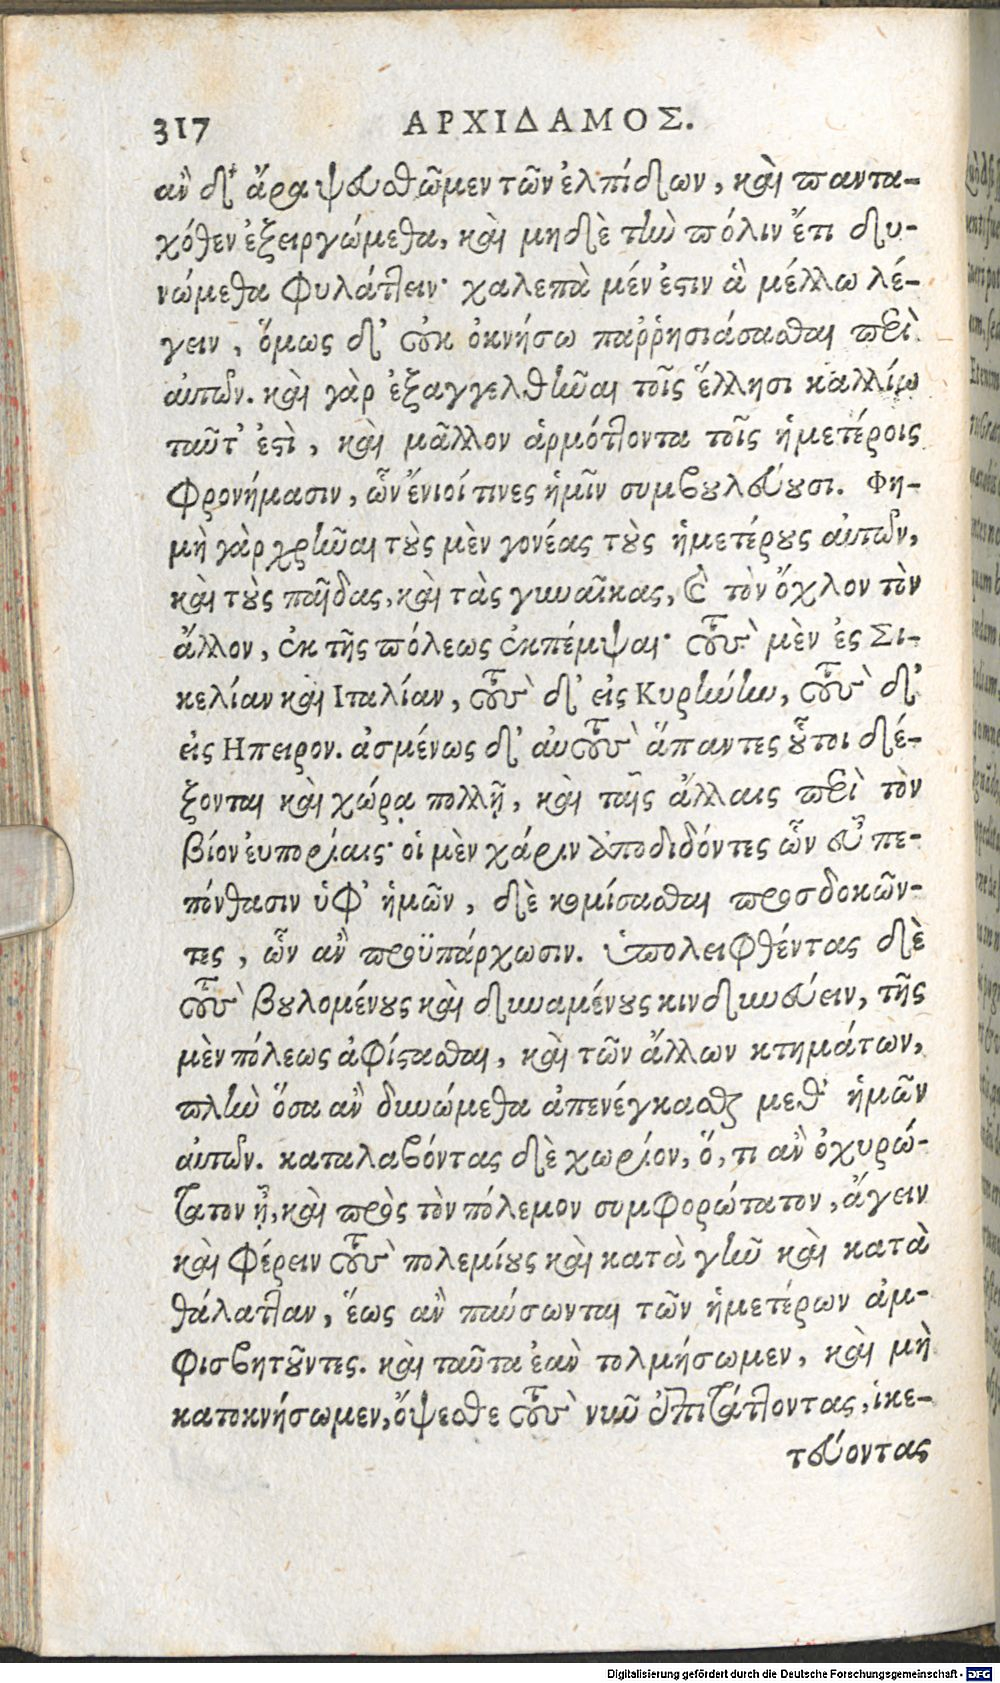 317 ΑΡΧΙΔΑΜΟΣ.
ἂν δ' ἄρα ψευσθῶμεν τῶν ἐλπίδων, καὶ παντα-
χόθεν ἐξειργώμεθα, καὶ μηδὲ τὴν πόλιν ἔτι δυ-
νώμεθα φυλάττειν· χαλεπὰ μέν ἐστιν ἃ μέλλω λέ-
γειν, ὅμως δ' οὐκ ὀκνήσω παῤῥησιάσασθαι περὶ
αὐτῶν. καὶ γὰρ ἐξαγγελθῆναι τοῖς ἕλλησι καλλίω
ταῦτ' ἐστὶ, καὶ μᾶλλον ἁρμόττοντα τοῖς ἡμετέροις
φρονήμασιν, ὧν ἔνιοί τινες ἡμῖν συμβουλεύουσι. Φη-
μὴ γὰρ χρῆναι τοὺς μὲν γονέας τοὺς ἡμετέρους αὐτῶν,
καὶ τοὺς παῖδας, καὶ τὰς γυναῖκας, καὶ τὸν ὄχλον τὸν
ἄλλον, ἐκ τῆς πόλεως ἐκπέμψαι· τοὺς μὲν ἐς Σι-
κελίαν καὶ Ιταλίαν, τοὺς δ' εἰς Κυρήνην, τοὺς δ'
εἰς Ηπειρον. ἀσμένως δ' αὐτοὺς ἅπαντες οὗτοι δέ-
ξονται καὶ χώρᾳ πολλῇ, καὶ ταῖς ἄλλαις περὶ τὸν
βίον εὐπορίαις· οἱ μὲν χάριν ἀποδιδόντες ὧν εὖ πε-
πόνθασιν ὑφ' ἡμῶν, δὲ κομίσασθαι προσδοκῶν-
τες, ὧν ἂν προϋπάρχωσιν. ὑπολειφθέντας δὲ
τοὺς βουλομένους καὶ δυναμένους κινδυνεύειν, τῆς
μὲν πόλεως ἀφίστασθαι, καὶ τῶν ἄλλων κτημάτων,
πλὴν ὅσα ἂν δυνώμεθα ἀπενέγκασθαι μεθ' ἡμῶν
αὐτῶν. καταλαβόντας δὲ χωρίον, ὅ, τι ἂν ὀχυρώ-
τατον ᾖ, καὶ πρὸς τὸν πόλεμον συμφορώτατον, ἄγειν
καὶ φέρειν τοὺς πολεμίους καὶ κατὰ γῆν καὶ κατὰ
θάλατταν, ἕως ἂν παύσωνται τῶν ἡμετέρων ἀμ-
φισβητοῦντες. καὶ ταῦτα ἐὰν τολμήσωμεν, καὶ μὴ
κατοκνήσωμεν, ὄψεσθε τοὺς νῦν ἐπιτάττοντας, ἱκε-
τεύοντας
Digitalisierung gefördert durch die Deutsche Forschungsgemeinschaft - DFG